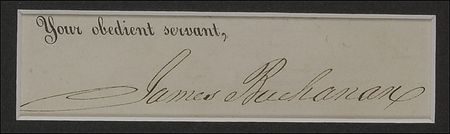 Your obedient servant,
James Buchanan